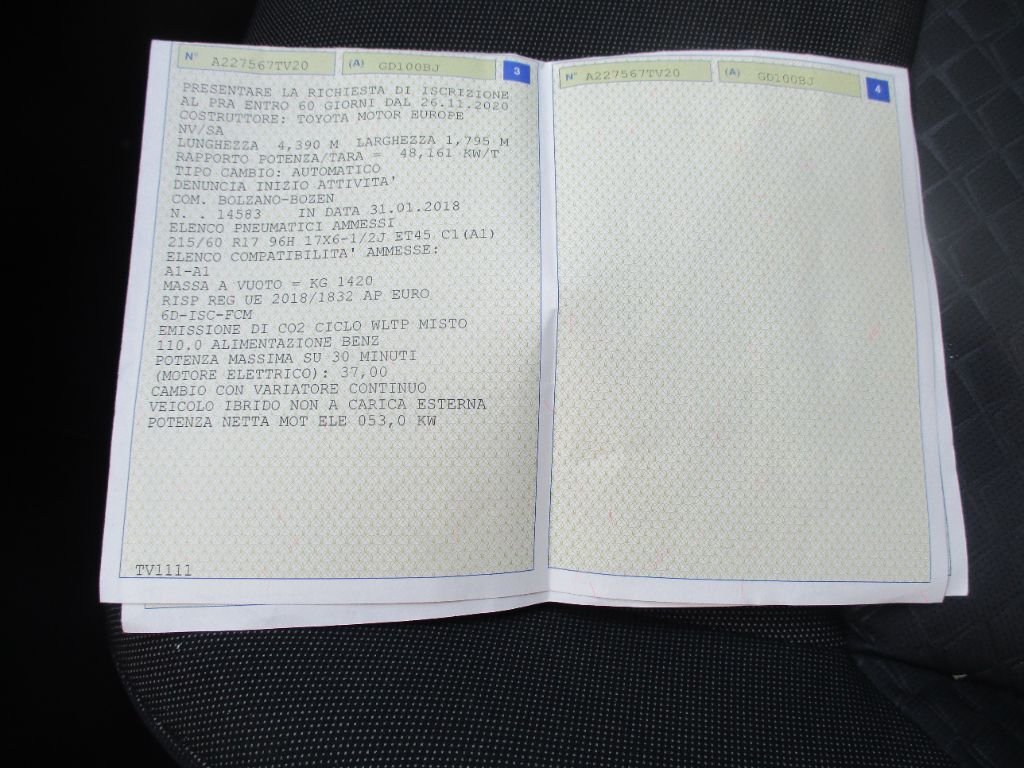 N° A227567TV20 (A) GD100BJ 3
PRESENTARE LA RICHIESTA DI ISCRIZIONE
AL PRA ENTRO 60 GIORNI DAL 26.11.2020
COSTRUTTORE: TOYOTA MOTOR EUROPE
NV/SA
LUNGHEZZA 4,390 M LARGHEZZA 1,795 M
RAPPORTO POTENZA/TARA = 48,161 KW/T
TIPO CAMBIO: AUTOMATICO
DENUNCIA INIZIO ATTIVITA'
COM. BOLZANO-BOZEN
N. . 14583 IN DATA 31.01.2018
ELENCO PNEUMATICI AMMESSI
215/60 R17 96H 17X6-1/2J ET45 C1(A1)
ELENCO COMPATIBILITA' AMMESSE:
A1-A1
MASSA A VUOTO = KG 1420
RISP REG UE 2018/1832 AP EURO
6D-ISC-FCM
EMISSIONE DI CO2 CICLO WLTP MISTO
110.0 ALIMENTAZIONE BENZ
POTENZA MASSIMA SU 30 MINUTI
(MOTORE ELETTRICO): 37,00
CAMBIO CON VARIATORE CONTINUO
VEICOLO IBRIDO NON A CARICA ESTERNA
POTENZA NETTA MOT ELE 053,0 KW
TV1111
N° A227567TV20 (A) GD100BJ 4